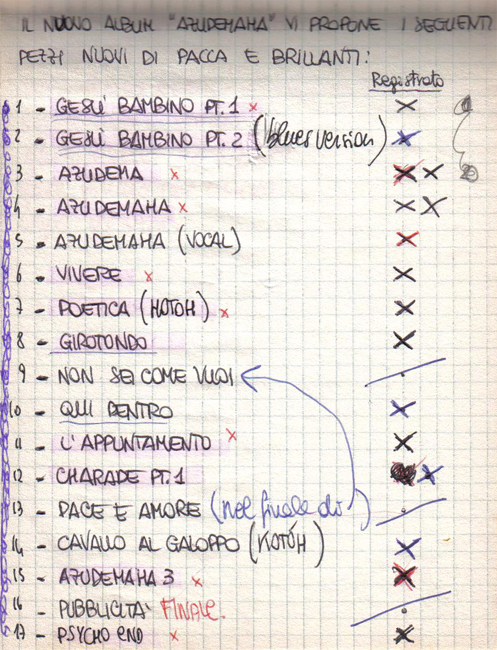 IL NUOVO ALBUM "AZUDEMAHA" VI PROPONE I SEGUENTI
PEZZI NUOVI DI PACCA E BRILLANTI:
Registrato
1 - GESÙ BAMBINO PT. 1 x X
2 - GESÙ BAMBINO PT. 2 (blues version) X
3 - AZUDEMA x X X
4 - AZUDEMAHA x X X
5 - AZUDEMAHA (VOCAL) X
6 - VIVERE x X
7 - POETICA (HOTOH) x X
8 - GIROTONDO X
9 - NON SEI COME VUOI
10 - QUI DENTRO X
11 - L'APPUNTAMENTO x X
12 - CHARADE PT. 1 X
13 - PACE E AMORE (nel finale di
14 - CAVALLO AL GALOPPO (KOTÓH) X
15 - AZUDEMAHA 3 x X
16 - PUBBLICITÀ FINALE.
17 - PSYCHO END x X